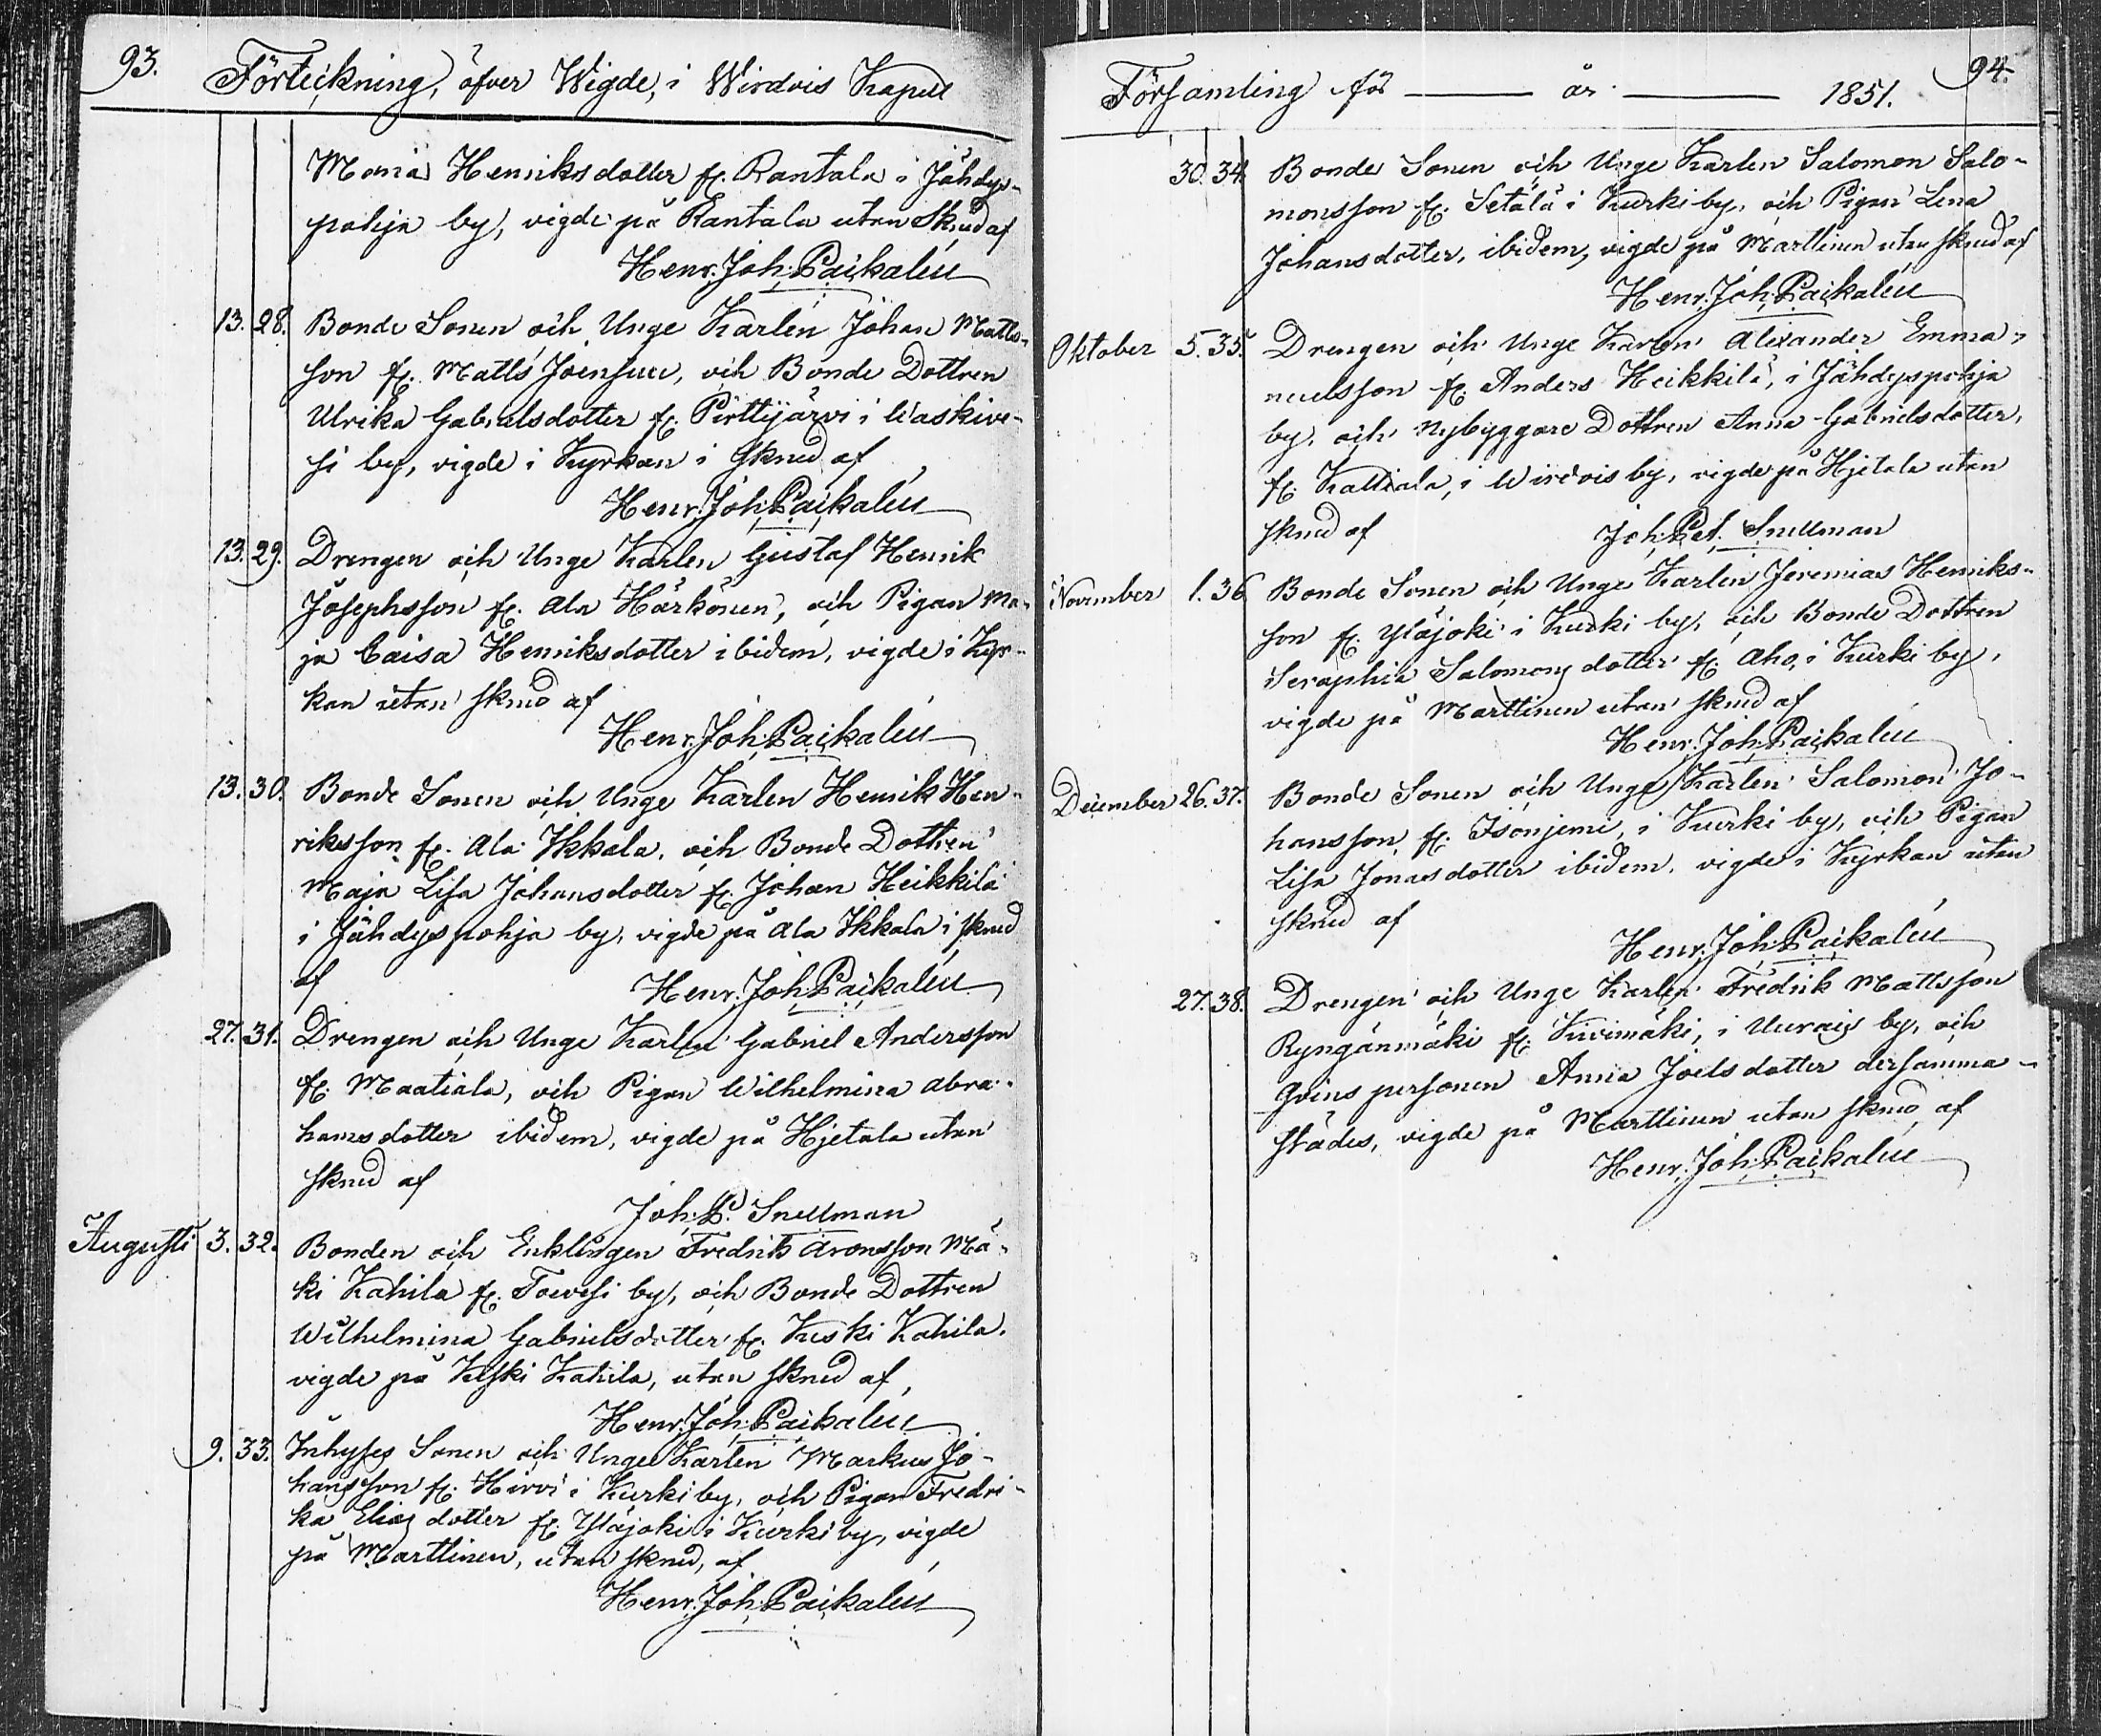 93.
Förteckning, öfver Wigde, i Wirdois Kapell
Maria Henriksdotter fr. Rantala i Jähdys-
pohja by, vigde på Rantala utan Skrud af
Henr. Joh. Paikalén
13. 28. Bonde Sonen och Unge Karlen Johan Matts-
son fr. Matts Joensuu, och Bonde Dottren
Ulrika Gabrielsdotter fr. Pirttijärvi i Waskive-
si by, vigde i Kyrkan i Skrud af
Henr. Joh. Paikalén
13. 29. Drengen och Unge Karlen Gustaf Henrik
Josephsson fr. Ala Härkönen, och Pigan Ma-
ja Caisa Henriksdotter ibidem, vigde i Kyr-
kan utan skrud af
Henr. Joh. Paikalén
13. 30. Bonde Sonen och Unge Karlen Henrik Hen-
riksson fr. Ala Ikkala, och Bonde Dottren
Maja Lisa Johansdotter fr. Johan Heikkilä
i Jähdyspohja by, vigde på Ala Ikkala i skrud
af Henr. Joh. Paikalén
27. 31. Drengen och Unge Karlen Gabriel Andersson
fr. Maatiala, och Pigan Wilhelmina Abra-
hamsdotter ibidem, vigde på Hjetala utan
skrud af
Joh. P. Snellman
Augusti 3. 32. Bonden och Enklingen Fredrik Aronsson Mä-
ki Kahila fr. Toivesi by, och Bonde Dottren
Wilhelmina Gabrielsdotter fr. Keski Kahila,
vigde på Keski Kahila, utan skrud af
Henr. Joh. Paikalén
9. 33. Inhyses Sonen och Unge Karlen Markus Jo-
hansson fr. Hirvi i Kurki by, och Pigan Fredri-
ka Elias dotter fr. Yläjoki i Kurki by, vigde
på Marttinen, utan skrud, af
Henr. Joh. Paikalén
94.
Församling för år 1851.
30. 34. Bonde Sonen och Unge Karlen Salomon Salo-
monsson fr. Setälä i Kurki by, och Pigan Lena
Johansdotter, ibidem, vigde på Marttinen utan skrud af
Henr. Joh. Paikalén
Oktober 5. 35. Drengen och Unge Karlen Alexander Emma-
nuelsson fr. Anders Heikkilä, i Jähdyspohja
by, och Nybyggare Dottren Anna Gabrielsdotter,
fr. Kattiala, i Wirdois by, vigde på Hjetala utan
skrud af Joh. Pet. Snellman
November 1. 36 Bonde Sonen och Unge Karlen Jeremias Henriks-
son fr. Yläjoki i Kurki by, och Bonde Dottren
Seraphia Salomons dotter fr. Aho, i Kurki by,
vigde på Marttinen utan skrud af
Henr. Joh. Paikalén
December 26. 37. Bonde Sonen och Unge Karlen Salomon Jo-
hansson, fr. Isoniemi, i Kurki by, och Pigan
Lisa Jonasdotter ibidem, vigde i Kyrkan utan
skrud af
Henr. Joh. Paikalén
27. 38. Drengen och Unge Karlen Fredrik Mattsson
Ryngänmäki fr. Kivimäki, i Uurais by, och
Qvins personen Anna Joels dotter dersamma-
städes, vigde på Marttinen utan skrud af
Henr. Joh. Paikalén